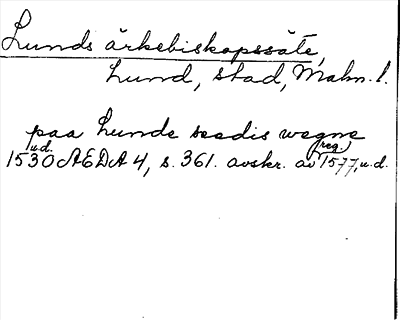 Lunds ärkebiskopssäte,
Lund, stad, Malm. l.
paa Lunde saedis wegne
u.d. (reg.)
1530 AEDA 4, s. 361. avskr. av 1577, u.d.